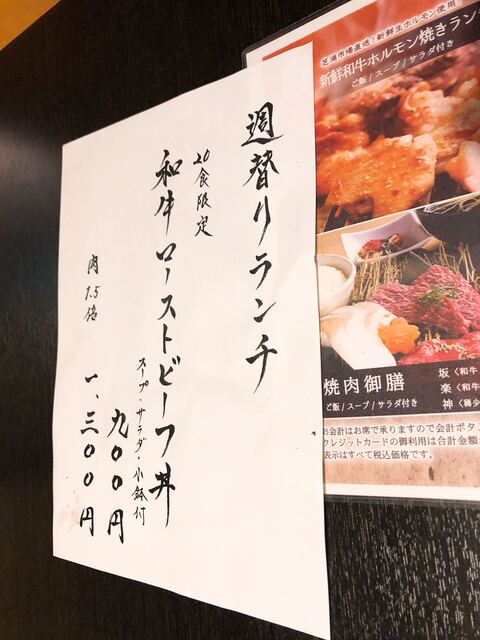 週替りランチ
20食限定
和牛ローストビーフ丼
スープ・サラダ・小鉢付
九〇〇円
肉1.5倍
一、三〇〇円
芝浦市場直送！新鮮生ホルモン使用
新鮮和牛ホルモン焼きラン
ご飯 / スープ / サラダ付き
焼肉御膳
ご飯 / スープ / サラダ付き
坂〈和牛
楽〈和牛
神〈稀少
お会計はお席で承りますので会計ボタ
クレジットカードの御利用は合計金額
表示はすべて税込価格です。